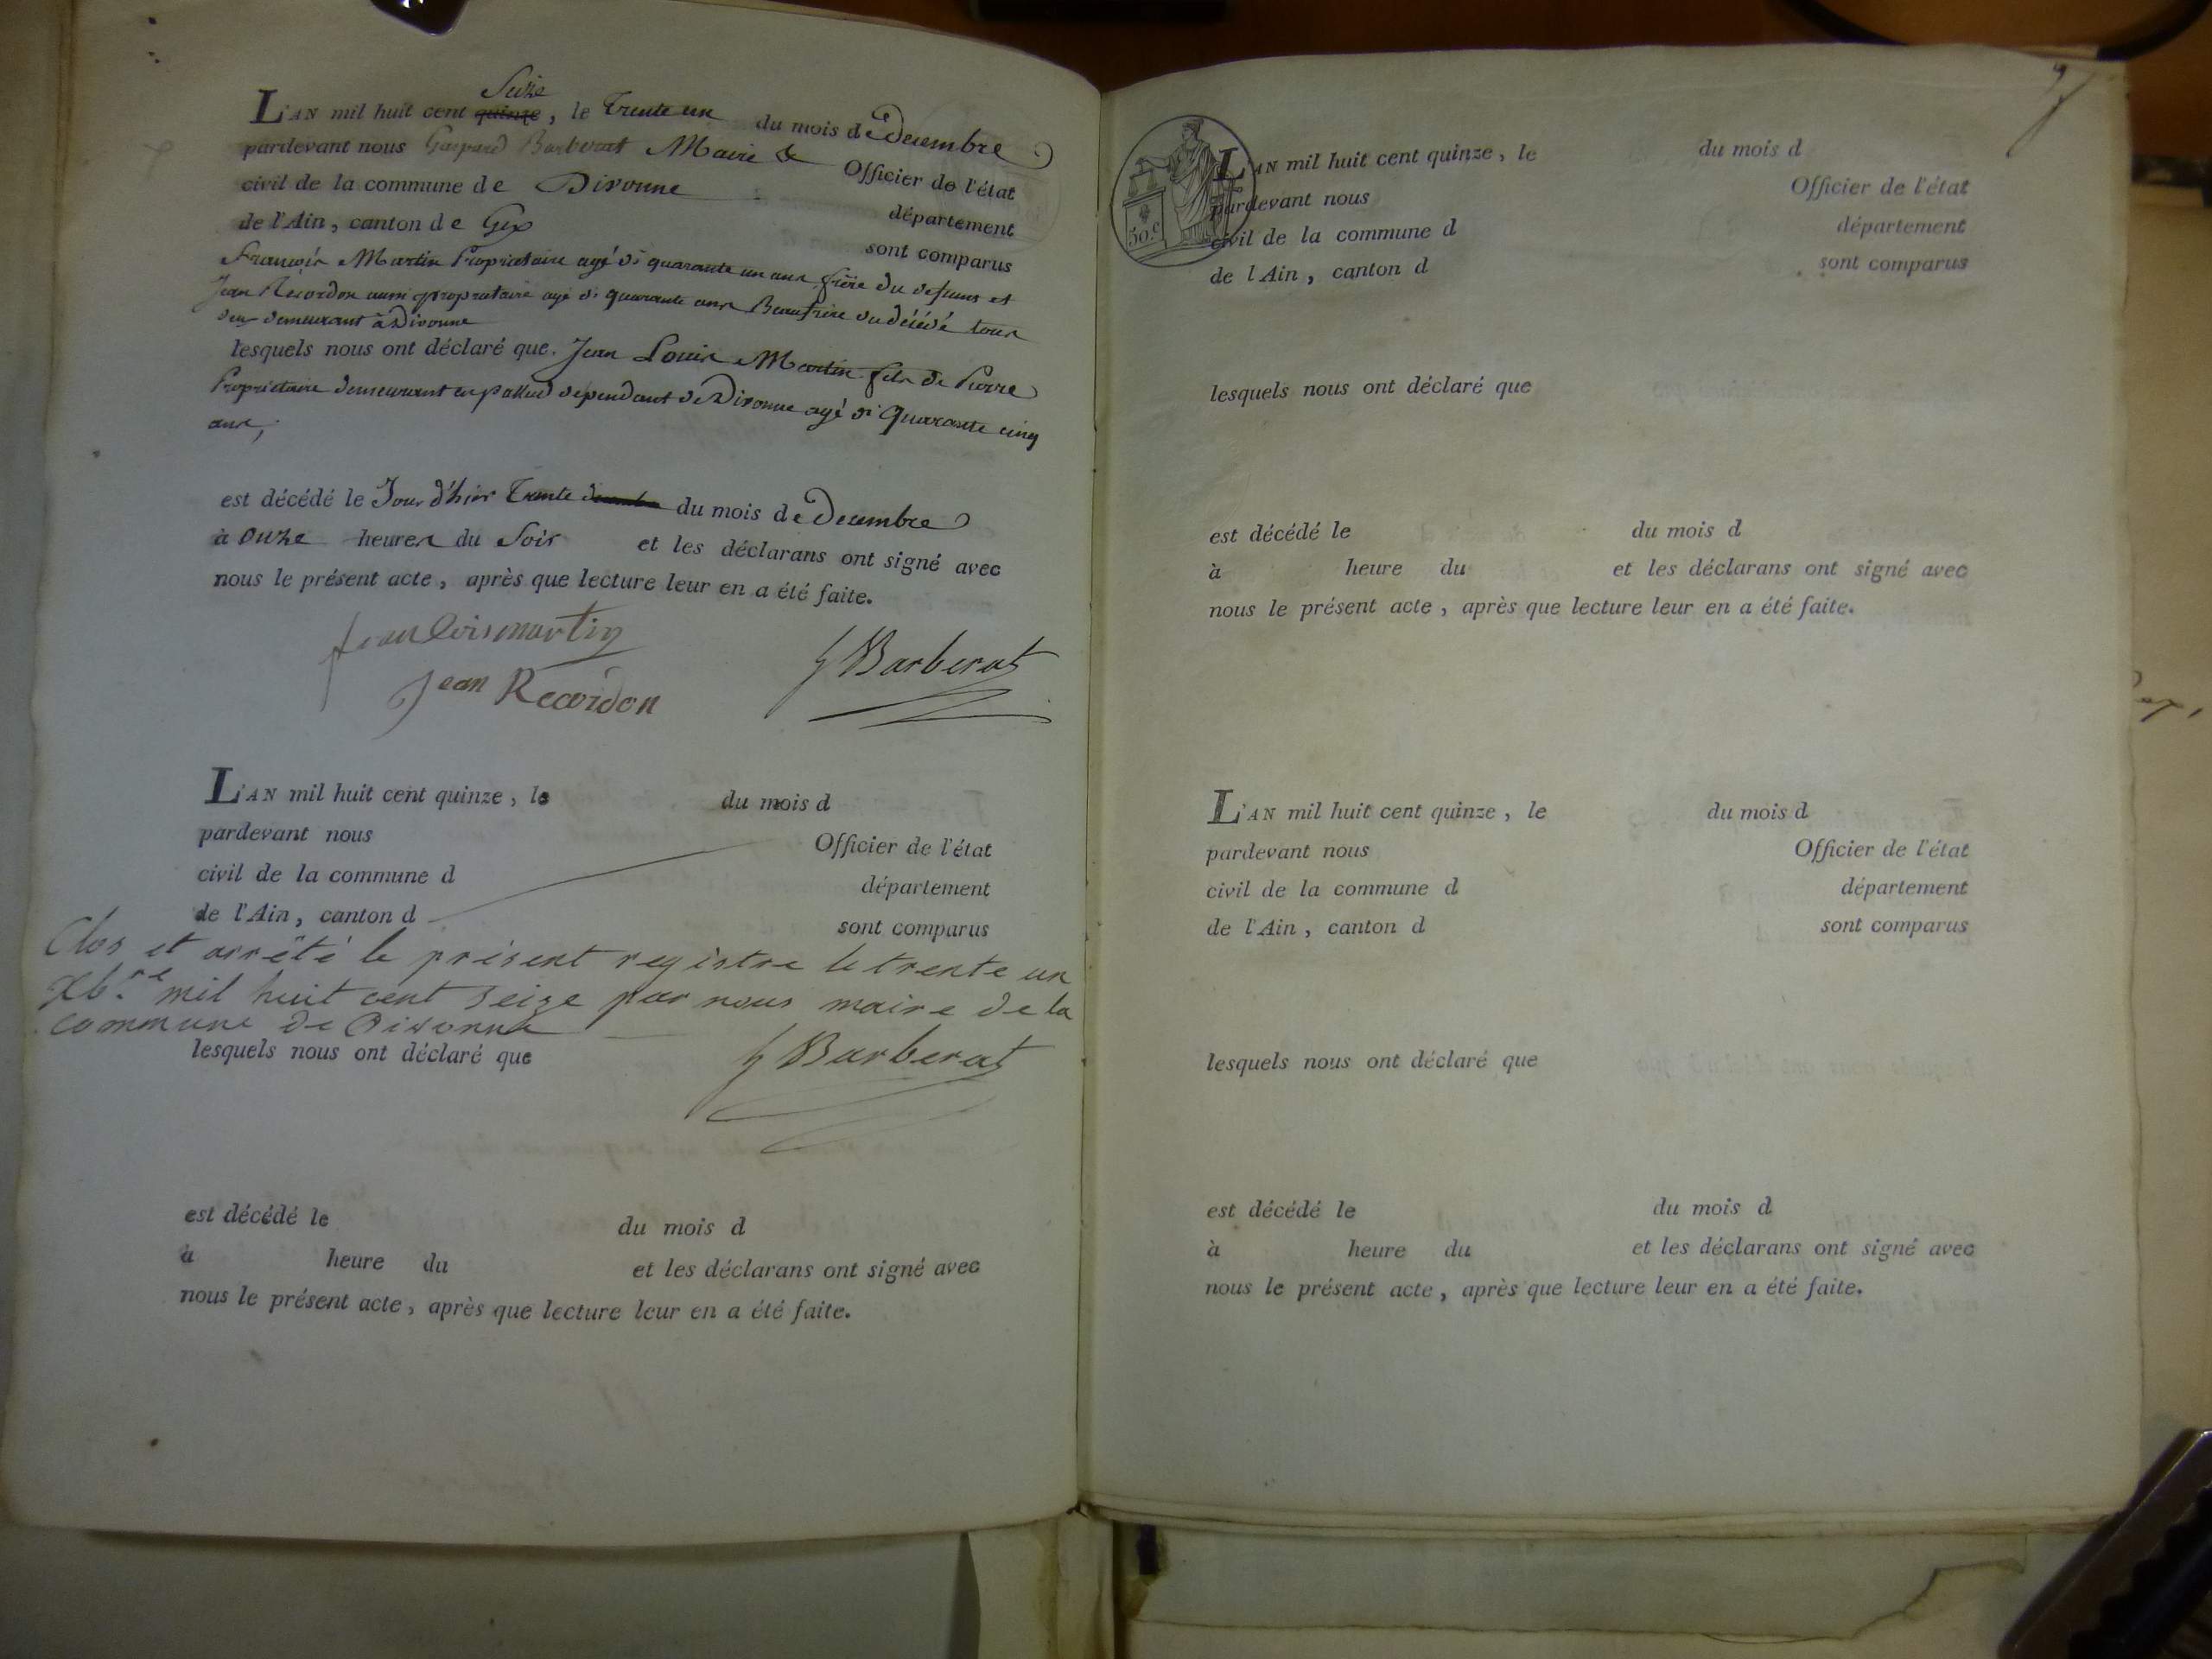 Seize
L'AN mil huit cent quinze, le Trente un du mois de Decembre
pardevant nous Gaspard Barberat Maire & Officier de l'état
civil de la commune de Divonne département
de l'Ain, canton de Gex sont comparus
François Martin Propriétaire agé de quarante un ans frère du defunt et
Jean Recordon aussi propriétaire agé de quarante ans Beaufrère du décédé tous
deux demeurant à Divonne
lesquels nous ont déclaré que Jean Louis Martin fils de Pierre
Propriétaire demeurant en pallud dependant de Divonne agé de Quarante cinq
ans,
est décédé le Jour d'hier Trente du mois de Decembre
à onze heures du Soir et les déclarans ont signé avec
nous le présent acte, après que lecture leur en a été faite.
jean loismartin
Jean Recordon
G Barberat
L'AN mil huit cent quinze, le du mois d
pardevant nous Officier de l'état
civil de la commune d département
de l'Ain, canton d sont comparus
Clos et arrêté le présent registre le trente un
Xb.re mil huit cent seize par nous maire de la
commune de Divonne
lesquels nous ont déclaré que
G Barberat
est décédé le du mois d
à heure du et les déclarans ont signé avec
nous le présent acte, après que lecture leur en a été faite.
50.c
L'AN mil huit cent quinze, le du mois d
pardevant nous Officier de l'état
civil de la commune d département
de l'Ain, canton d sont comparus
lesquels nous ont déclaré que
est décédé le du mois d
à heure du et les déclarans ont signé avec
nous le présent acte, après que lecture leur en a été faite.
L'AN mil huit cent quinze, le du mois d
pardevant nous Officier de l'état
civil de la commune d département
de l'Ain, canton d sont comparus
lesquels nous ont déclaré que
est décédé le du mois d
à heure du et les déclarans ont signé avec
nous le présent acte, après que lecture leur en a été faite.